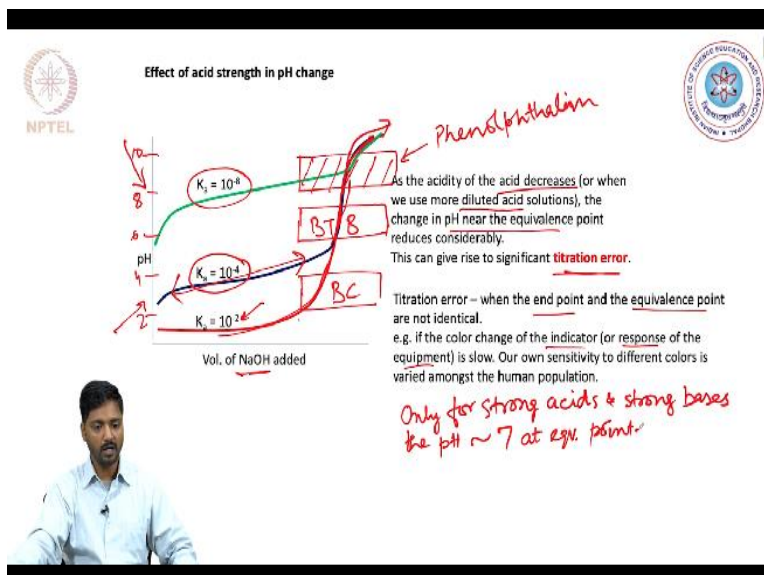 Effect of acid strength in pH change
NPTEL
Phenolphthalin
10
8
6
pH
4
2
Kₐ = 10⁻⁸
Kₐ = 10⁻⁴
Kₐ = 10²
BTB
BC
Vol. of NaOH added
As the acidity of the acid decreases (or when
we use more diluted acid solutions), the
change in pH near the equivalence point
reduces considerably.
This can give rise to significant titration error.
Titration error – when the end point and the equivalence point
are not identical.
e.g. if the color change of the indicator (or response of the
equipment) is slow. Our own sensitivity to different colors is
varied amongst the human population.
Only for strong acids & strong bases
the pH ~ 7 at eqv. point.